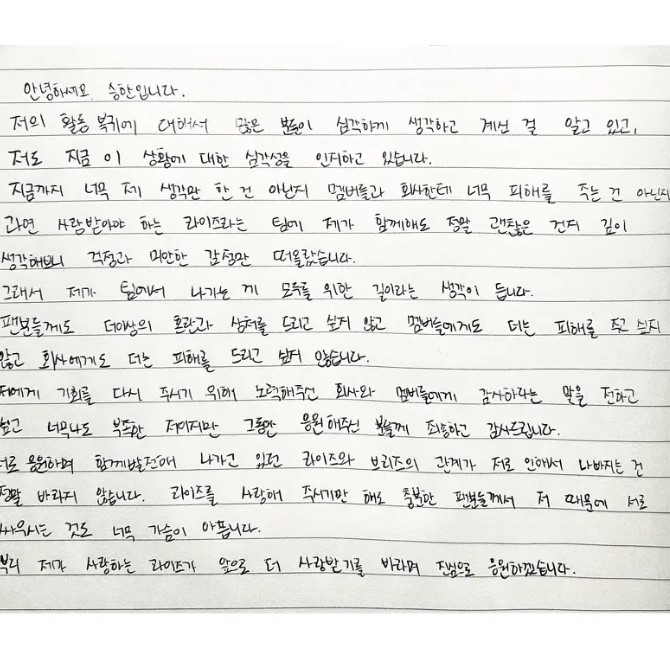 안녕하세요. 승한입니다.
저의 활동 복귀에 대해서 많은 분들이 심각하게 생각하고 계신 걸 알고 있고,
저도 지금 이 상황에 대한 심각성을 인지하고 있습니다.
지금까지 너무 제 생각만 한 건 아닌지 멤버들과 회사한테 너무 피해를 주는 건 아닌지
과연 사랑받아야 하는 라이즈라는 팀에 제가 함께해도 정말 괜찮은 건지 깊이
생각해보니 걱정과 미안한 감정만 떠올랐습니다.
그래서 제가 팀에서 나가는 게 모두를 위한 길이라는 생각이 듭니다.
팬분들께도 더이상의 혼란과 상처를 드리고 싶지 않고 멤버들에게도 더는 피해를 주고 싶지
않고 회사에게도 더는 피해를 드리고 싶지 않습니다.
저에게 기회를 다시 주시기 위해 노력해주신 회사와 멤버들에게 감사하다는 말을 전하고
싶고 너무나도 부족한 저이지만 그동안 응원해주신 분들께 죄송하고 감사드립니다.
서로 응원하며 함께발전해 나가고 있던 라이즈와 브리즈의 관계가 저로 인해서 나빠지는 건
정말 바라지 않습니다. 라이즈를 사랑해 주시기만 해도 충분한 팬분들께서 저 때문에 서로
싸우시는 것도 너무 가슴이 아픕니다.
부디 제가 사랑하는 라이즈가 앞으로 더 사랑받기를 바라며 진심으로 응원하겠습니다.